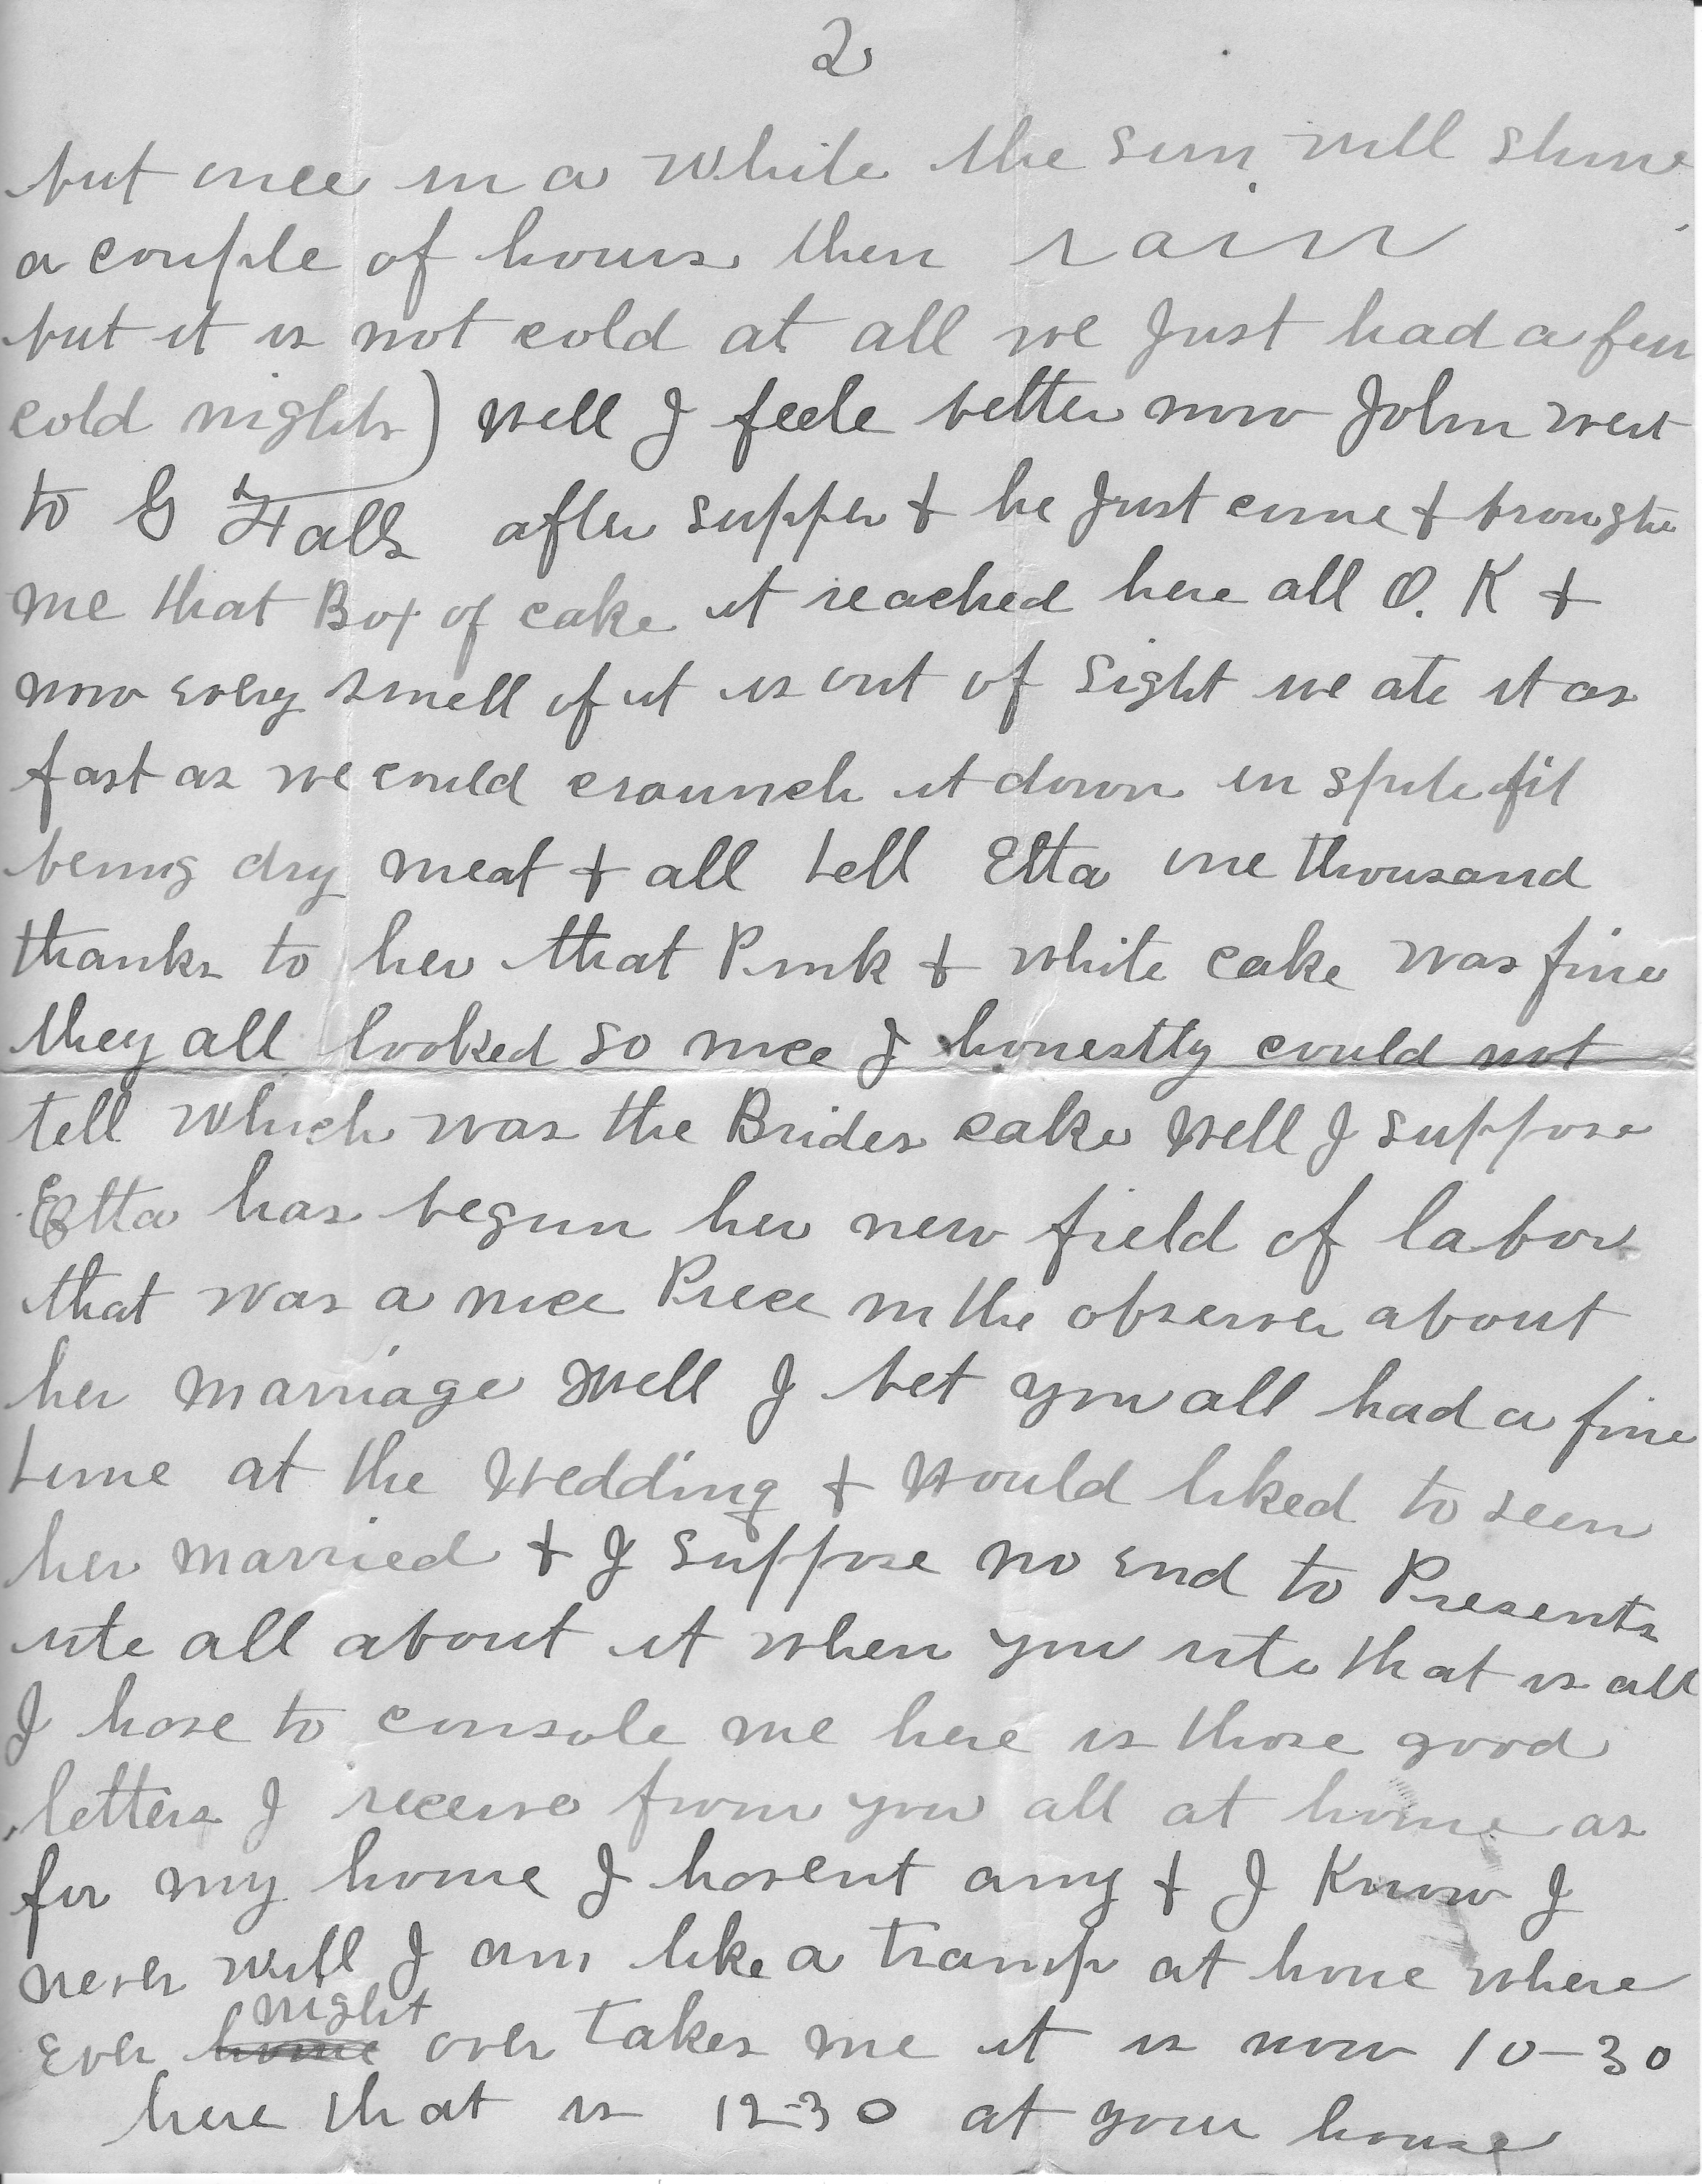 2
but once in a while the sun will shine
a couple of hours then rain
but it is not cold at all we Just had a few
cold nights) well I feele better now John went
to G Falls after supper + he Just come + brought
me that Box of cake it reached here all O. K +
now every smell of it is out of sight we ate it as
fast as we could craunch it down in spite of it
being dry meat + all tell Etta one thousand
thanks to her that Pink + white cake was fine
they all looked so nice I honestly could not
tell which was the Brides cake well I suppose
Etta has begun her new field of labor
that was a nice Piece in the observer about
her marriage well I bet you all had a fine
time at the wedding + would liked to seen
her married + I suppose no end to Presents
rite all about it when you rite that is all
I have to console me here is those good
letters I receive from you all at home as
for my home I havent any + I Know I
never will I am like a tramp at home where
Ever home night over takes me it is now 10-30
here that is 12-30 at your house